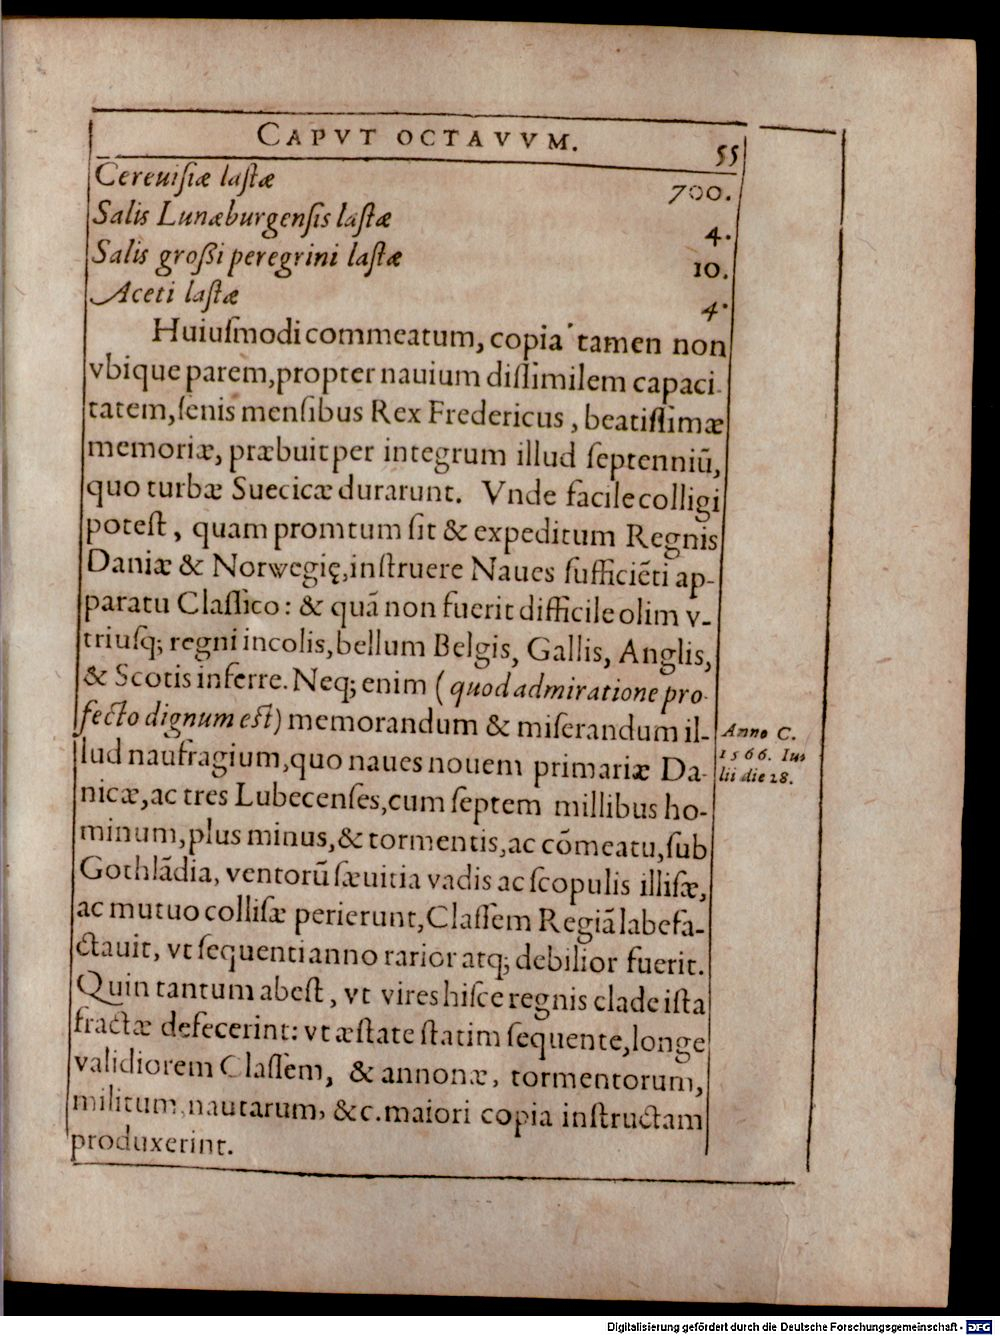 CAPVT OCTAVVM. 55
Cereuiſiæ laſtæ 700.
Salis Lunæburgenſis laſtæ 4.
Salis groſſi peregrini laſtæ 10.
Aceti laſtæ 4.
Huiuſmodi commeatum, copia tamen non
vbique parem, propter nauium diſſimilem capaci-
tatem, ſenis menſibus Rex Fredericus, beatiſſimæ
memoriæ, præbuit per integrum illud ſeptenniũ,
quo turbæ Suecicæ durarunt. Vnde facile colligi
poteſt, quam promtum ſit & expeditum Regnis
Daniæ & Norwegię, inſtruere Naues ſufficiẽti ap-
paratu Claſſico: & quã non fuerit difficile olim v-
triuſq; regni incolis, bellum Belgis, Gallis, Anglis,
& Scotis inferre. Neq; enim (quod admiratione pro-
fecto dignum eſt) memorandum & miſerandum il-
lud naufragium, quo naues nouem primariæ Da-
nicæ, ac tres Lubecenſes, cum ſeptem millibus ho-
minum, plus minus, & tormentis, ac cõmeatu, ſub
Gothlãdia, ventorũ ſæuitia vadis ac ſcopulis illiſæ,
ac mutuo colliſæ perierunt, Claſſem Regiã labefa-
ctauit, vt ſequenti anno rarior atq; debilior fuerit.
Quin tantum abeſt, vt vires hiſce regnis clade iſta
fractæ defecerint: vt æſtate ſtatim ſequente, longe
validiorem Claſſem, & annonæ, tormentorum,
militum, nautarum, &c. maiori copia inſtructam
produxerint.
Anno C.
1566. Iu-
lii die 28.
Digitalisierung gefördert durch die Deutsche Forschungsgemeinschaft - DFG